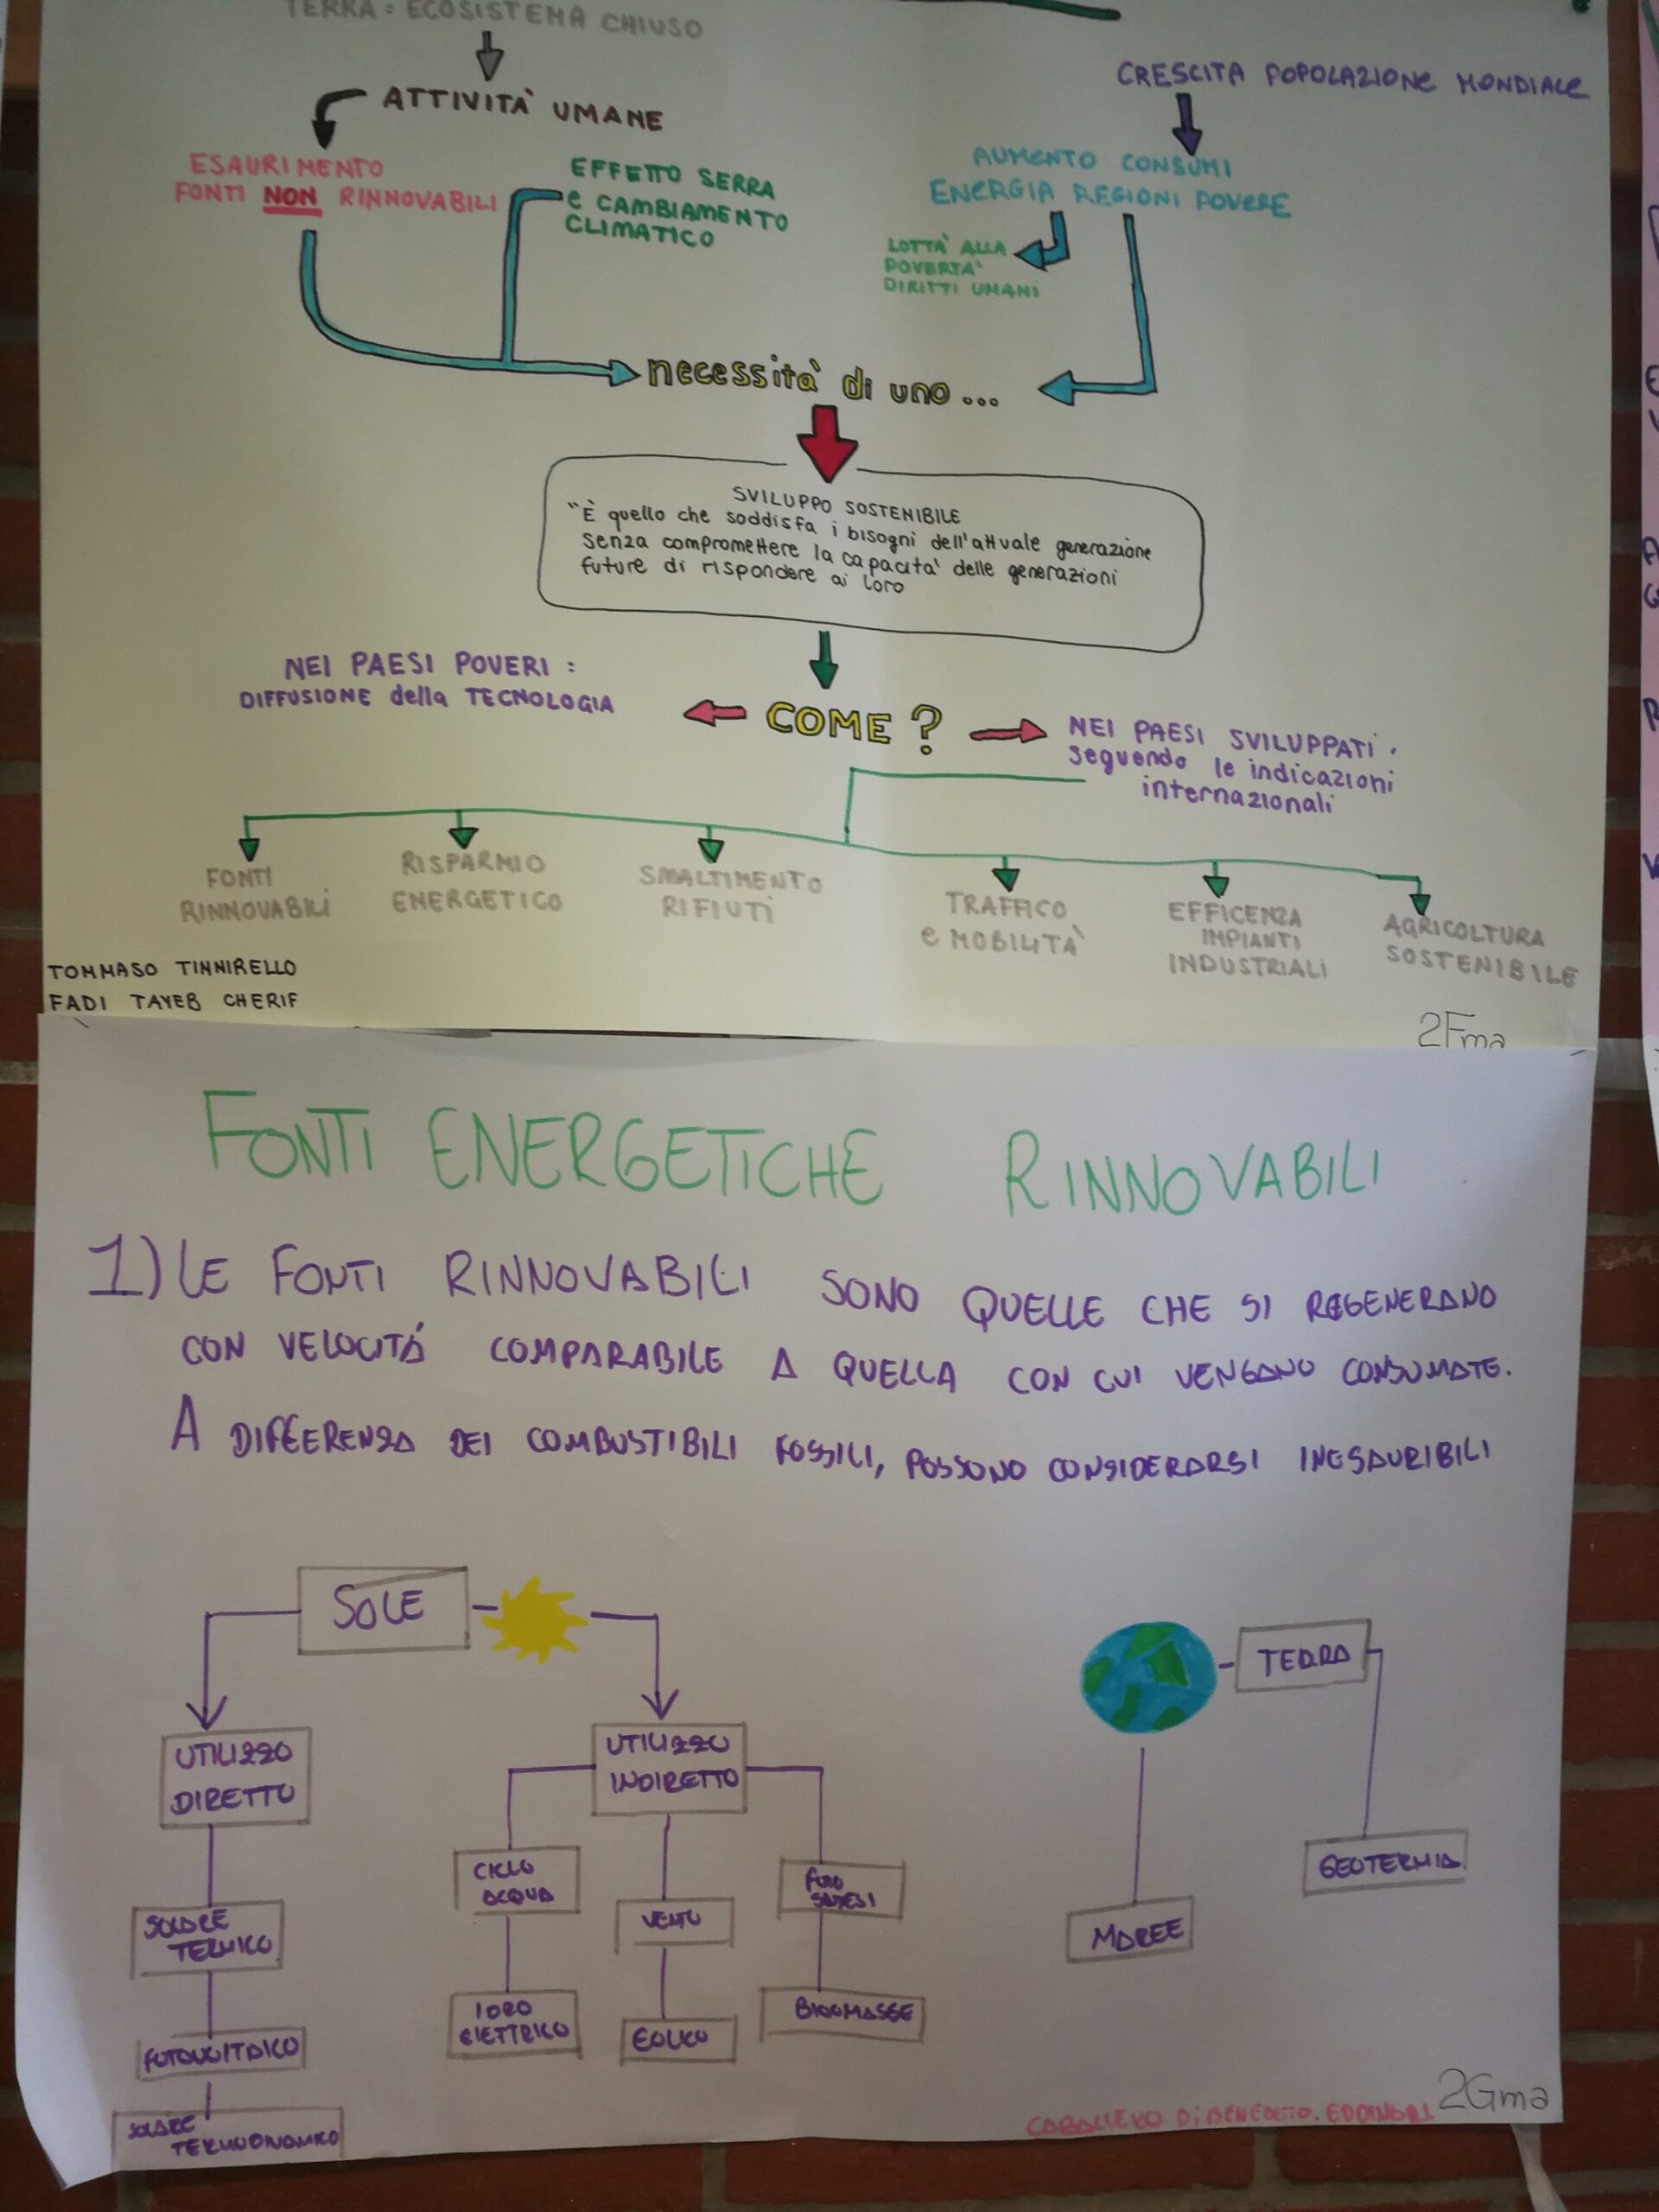 TERRA : ECOSISTEMA CHIUSO
ATTIVITÀ UMANE
ESAURIMENTO
FONTI NON RINNOVABILI
EFFETTO SERRA
e CAMBIAMENTO
CLIMATICO
CRESCITA POPOLAZIONE MONDIALE
AUMENTO CONSUMI
ENERGIA REGIONI POVERE
LOTTA' ALLA
POVERTA'
DIRITTI UMANI
necessità di uno...
SVILUPPO SOSTENIBILE
"È quello che soddisfa i bisogni dell'attuale generazione
senza compromettere la capacità delle generazioni
future di rispondere ai loro
NEI PAESI POVERI :
DIFFUSIONE della TECNOLOGIA
COME ?
NEI PAESI SVILUPPATI .
seguendo le indicazioni
internazionali
FONTI
RINNOVABILI
RISPARMIO
ENERGETICO
SMALTIMENTO
RIFIUTI
TRAFFICO
e MOBILITÀ
EFFICENZA
IMPIANTI
INDUSTRIALI
AGRICOLTURA
SOSTENIBILE
TOMMASO TINNIRELLO
FADI TAYEB CHERIF
2Fma
FONTI ENERGETICHE RINNOVABILI
1) LE FONTI RINNOVABILI SONO QUELLE CHE SI REGENERANO
CON VELOCITÁ COMPARABILE A QUELLA CON CUI VENGANO CONSUMATE.
A DIFFERENZA DEI COMBUSTIBILI FOSSILI, POSSONO CONSIDERARSI INESAURIBILI
SOLE
TERRA
UTILIZZO
DIRETTO
UTILIZZO
INDIRETTO
CICLO
ACQUA
VENTO
FOTO
SINTESI
GEOTERMIA
MAREE
SOLARE
TERMICO
IDRO
ELETTRICO
EOLICO
BIOMASSE
FOTOVOLTAICO
SOLARE
TERMODINAMICO
CABALLERO. Di BENEDETTO.
2Gma